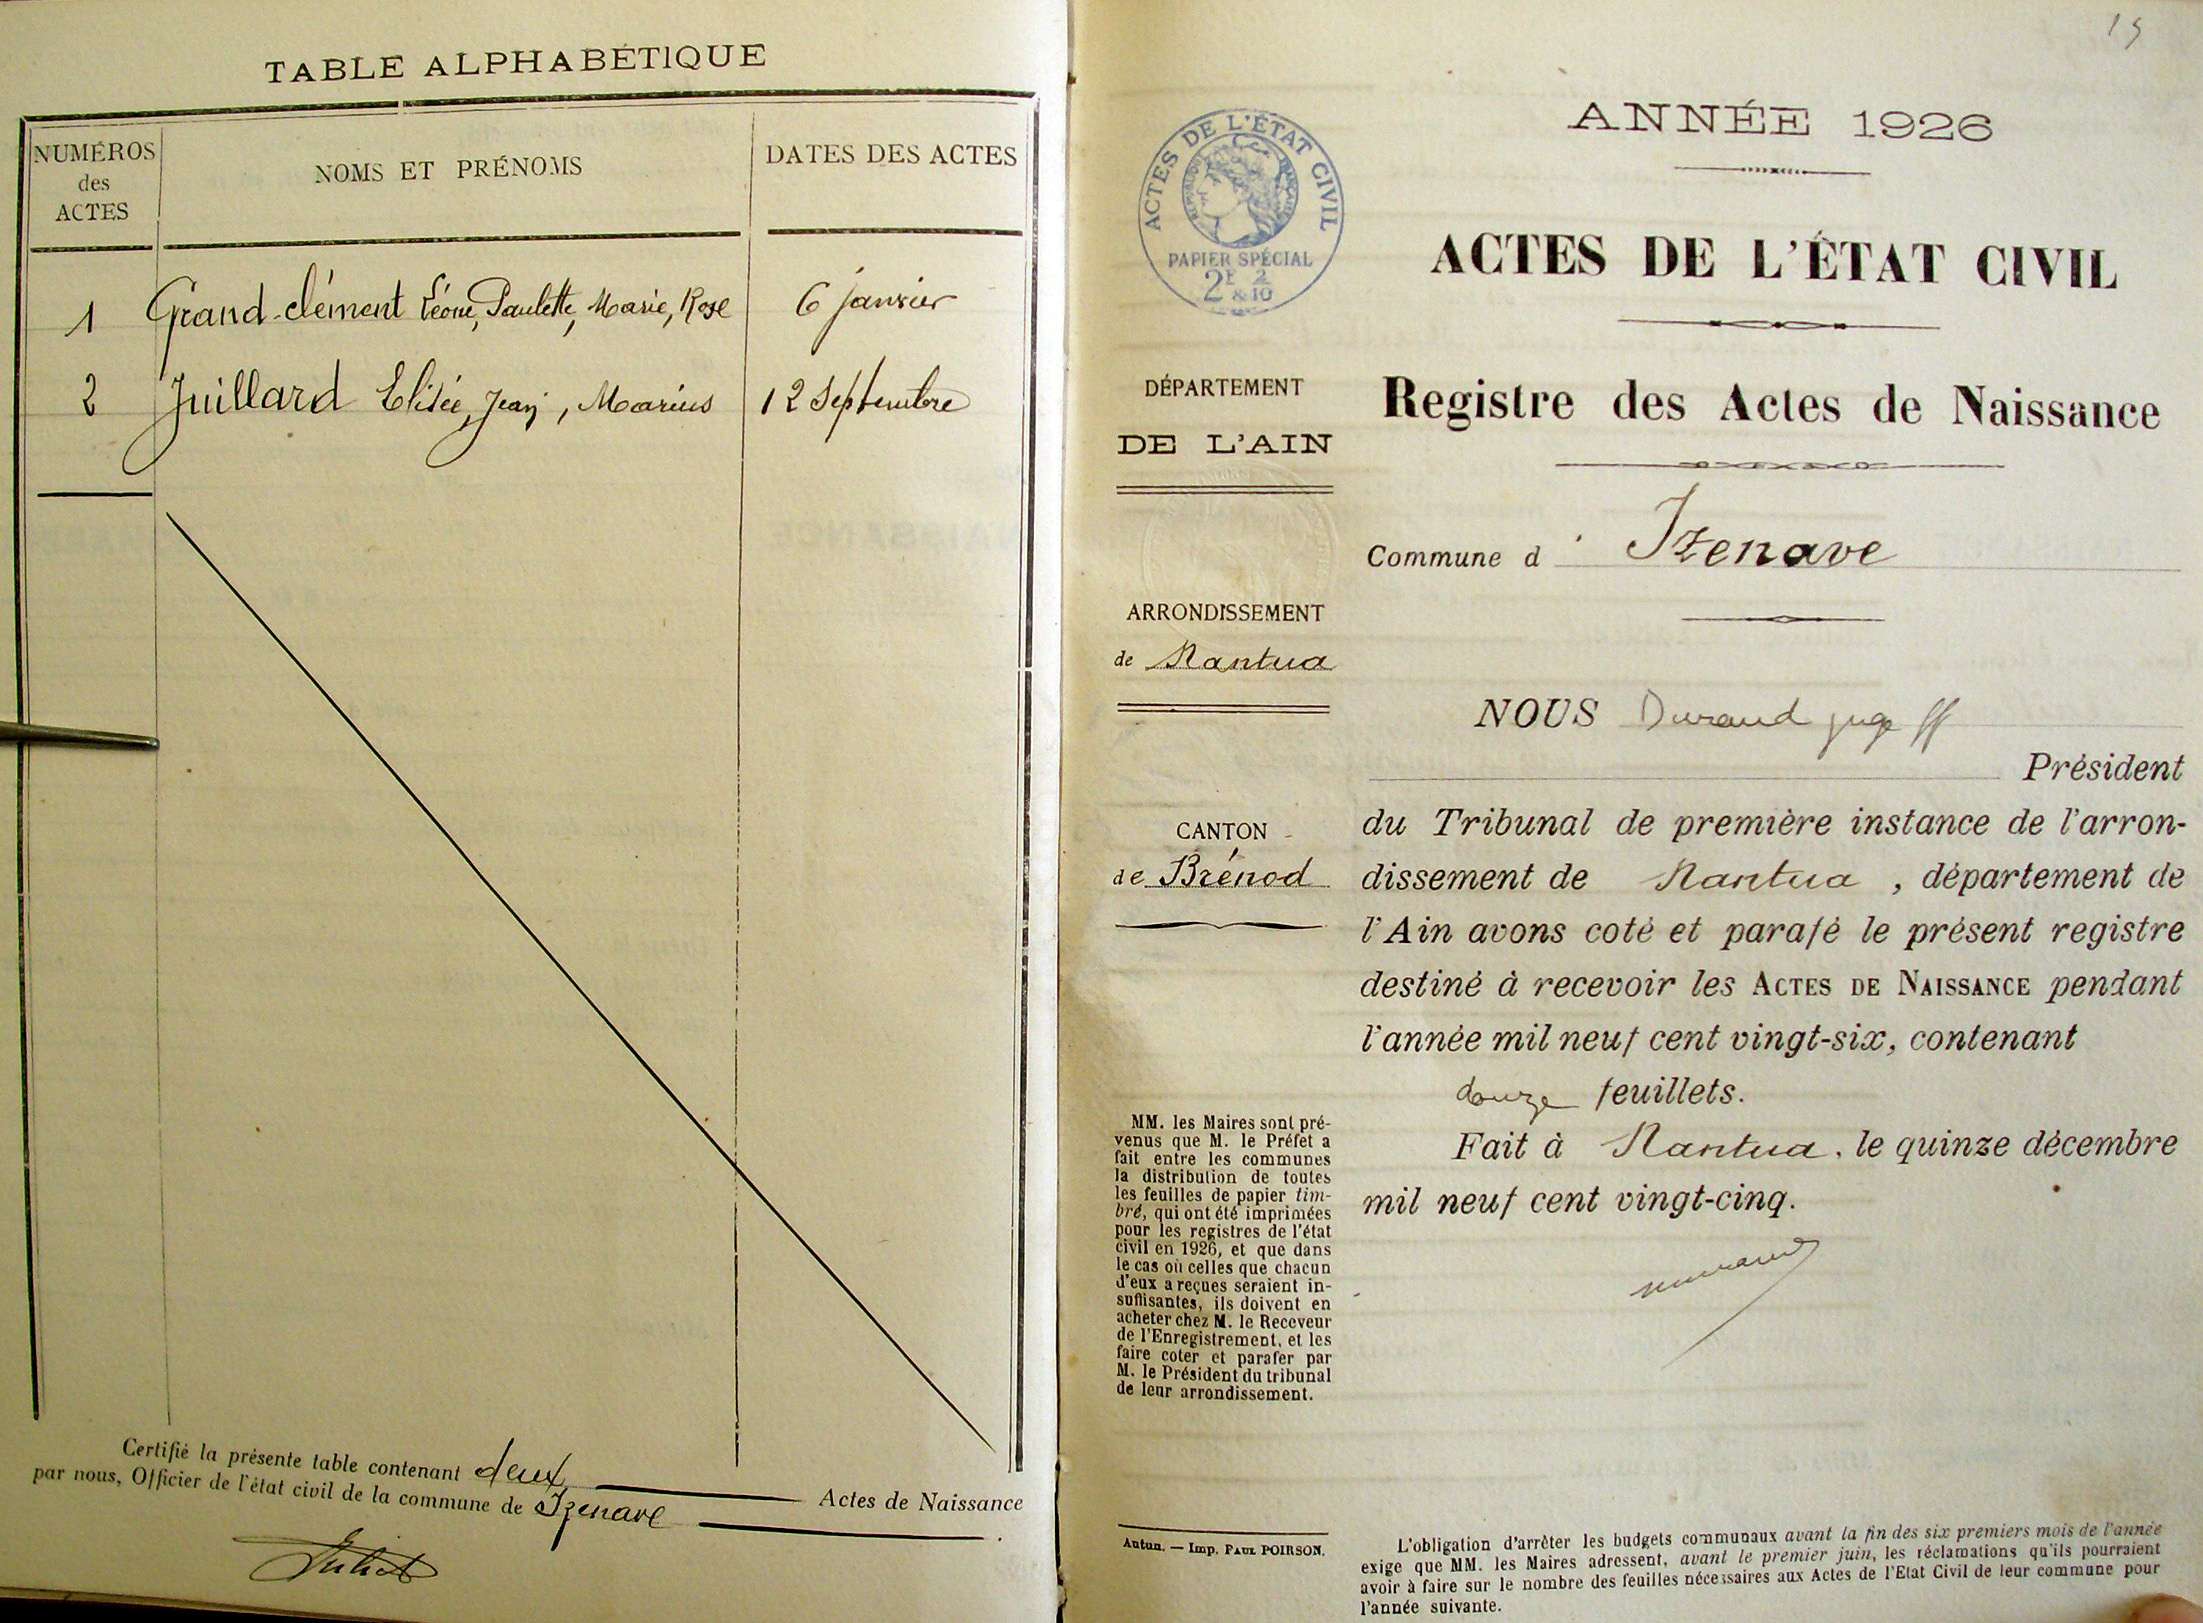 TABLE ALPHABÉTIQUE
NUMÉROS
des
ACTES
NOMS ET PRÉNOMS
DATES DES ACTES
1 Grand-clément Léone, Paulette, Marie, Rose 6 janvier
2 Juillard Elisée, Jean, Marius 12 Septembre
Certifié la présente table contenant deux Actes de Naissance
par nous, Officier de l'état civil de la commune de Izenave
15
ANNÉE 1926
ACTES DE L'ÉTAT CIVIL
RÉPUBLIQUE FRANÇAISE
PAPIER SPÉCIAL
2F 2
& 10
ACTES DE L'ÉTAT CIVIL
Registre des Actes de Naissance
DÉPARTEMENT
DE L'AIN
Commune d' Izenave
ARRONDISSEMENT
de Nantua
CANTON
de Brénod
NOUS Durand juge ff
Président
du Tribunal de première instance de l'arron-
dissement de Nantua, département de
l'Ain avons coté et parafé le présent registre
destiné à recevoir les ACTES DE NAISSANCE pendant
l'année mil neuf cent vingt-six, contenant
douze feuillets.
Fait à Nantua, le quinze décembre
mil neuf cent vingt-cinq.
MM. les Maires sont pré-
venus que M. le Préfet a
fait entre les communes
la distribution de toutes
les feuilles de papier tim-
bré, qui ont été imprimées
pour les registres de l'état
civil en 1926, et que dans
le cas où celles que chacun
d'eux a reçues seraient in-
suffisantes, ils doivent en
acheter chez M. le Receveur
de l'Enregistrement, et les
faire coter et parafer par
M. le Président du tribunal
de leur arrondissement.
Autun. — Imp. PAUL POIRSON.
L'obligation d'arrêter les budgets communaux avant la fin des six premiers mois de l'année
exige que MM. les Maires adressent, avant le premier juin, les réclamations qu'ils pourraient
avoir à faire sur le nombre des feuilles nécessaires aux Actes de l'Etat Civil de leur commune pour
l'année suivante.